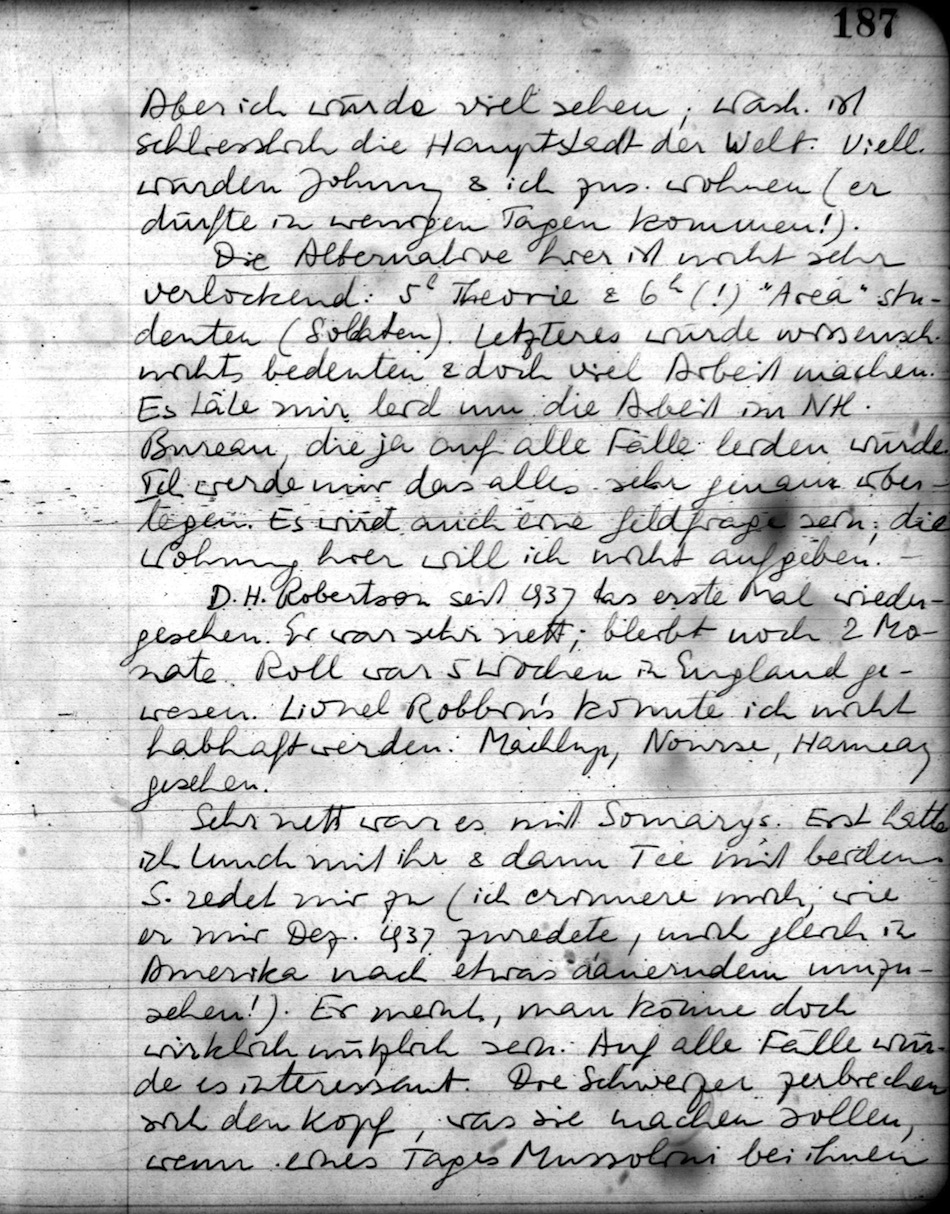 187
Aber ich würde viel sehen; Wash. ist
schliesslich die Hauptstadt der Welt. Viell.
würden Johnny & ich zus. wohnen (er
dürfte in wenigen Tagen kommen!).
Die Alternative hier ist nicht sehr
verlockend: 5h Theorie & 6h (!) "Area" stu-
denten (Soldaten). Letzteres würde wissensch.
nichts bedeuten & doch viel Arbeit machen.
Es täte mir leid um die Arbeit im NH.
Bureau, die ja auf alle Fälle leiden würde.
Ich werde mir das alles sehr genau über-
legen. Es wird auch eine Geldfrage sein; die
Wohnung hier will ich nicht aufgeben. –
D.H. Robertson seit 1937 das erste Mal wieder-
gesehen. Er war sehr nett; bleibt noch 2 Mo-
nate. Roll war 5 Wochen in England ge-
wesen. Lionel Robbins konnte ich nicht
habhaft werden. Machlup, Nourse,
gesehen.
Sehr nett war es mit Somarys. Erst hatte
ich Lunch mit ihr & dann Tee mit beiden.
S. redet mir zu (ich erinnere mich, wie
er mir Dez. 1937 zuredete, mich gleich in
Amerika nach etwas dauerndem umzu-
sehen!). Er meint, man könne doch
wirklich nützlich sein. Auf alle Fälle wür-
de es interessant. Die Schweizer zerbrechen
sich den Kopf, was sie machen sollen,
wenn eines Tages Mussolini bei ihnen